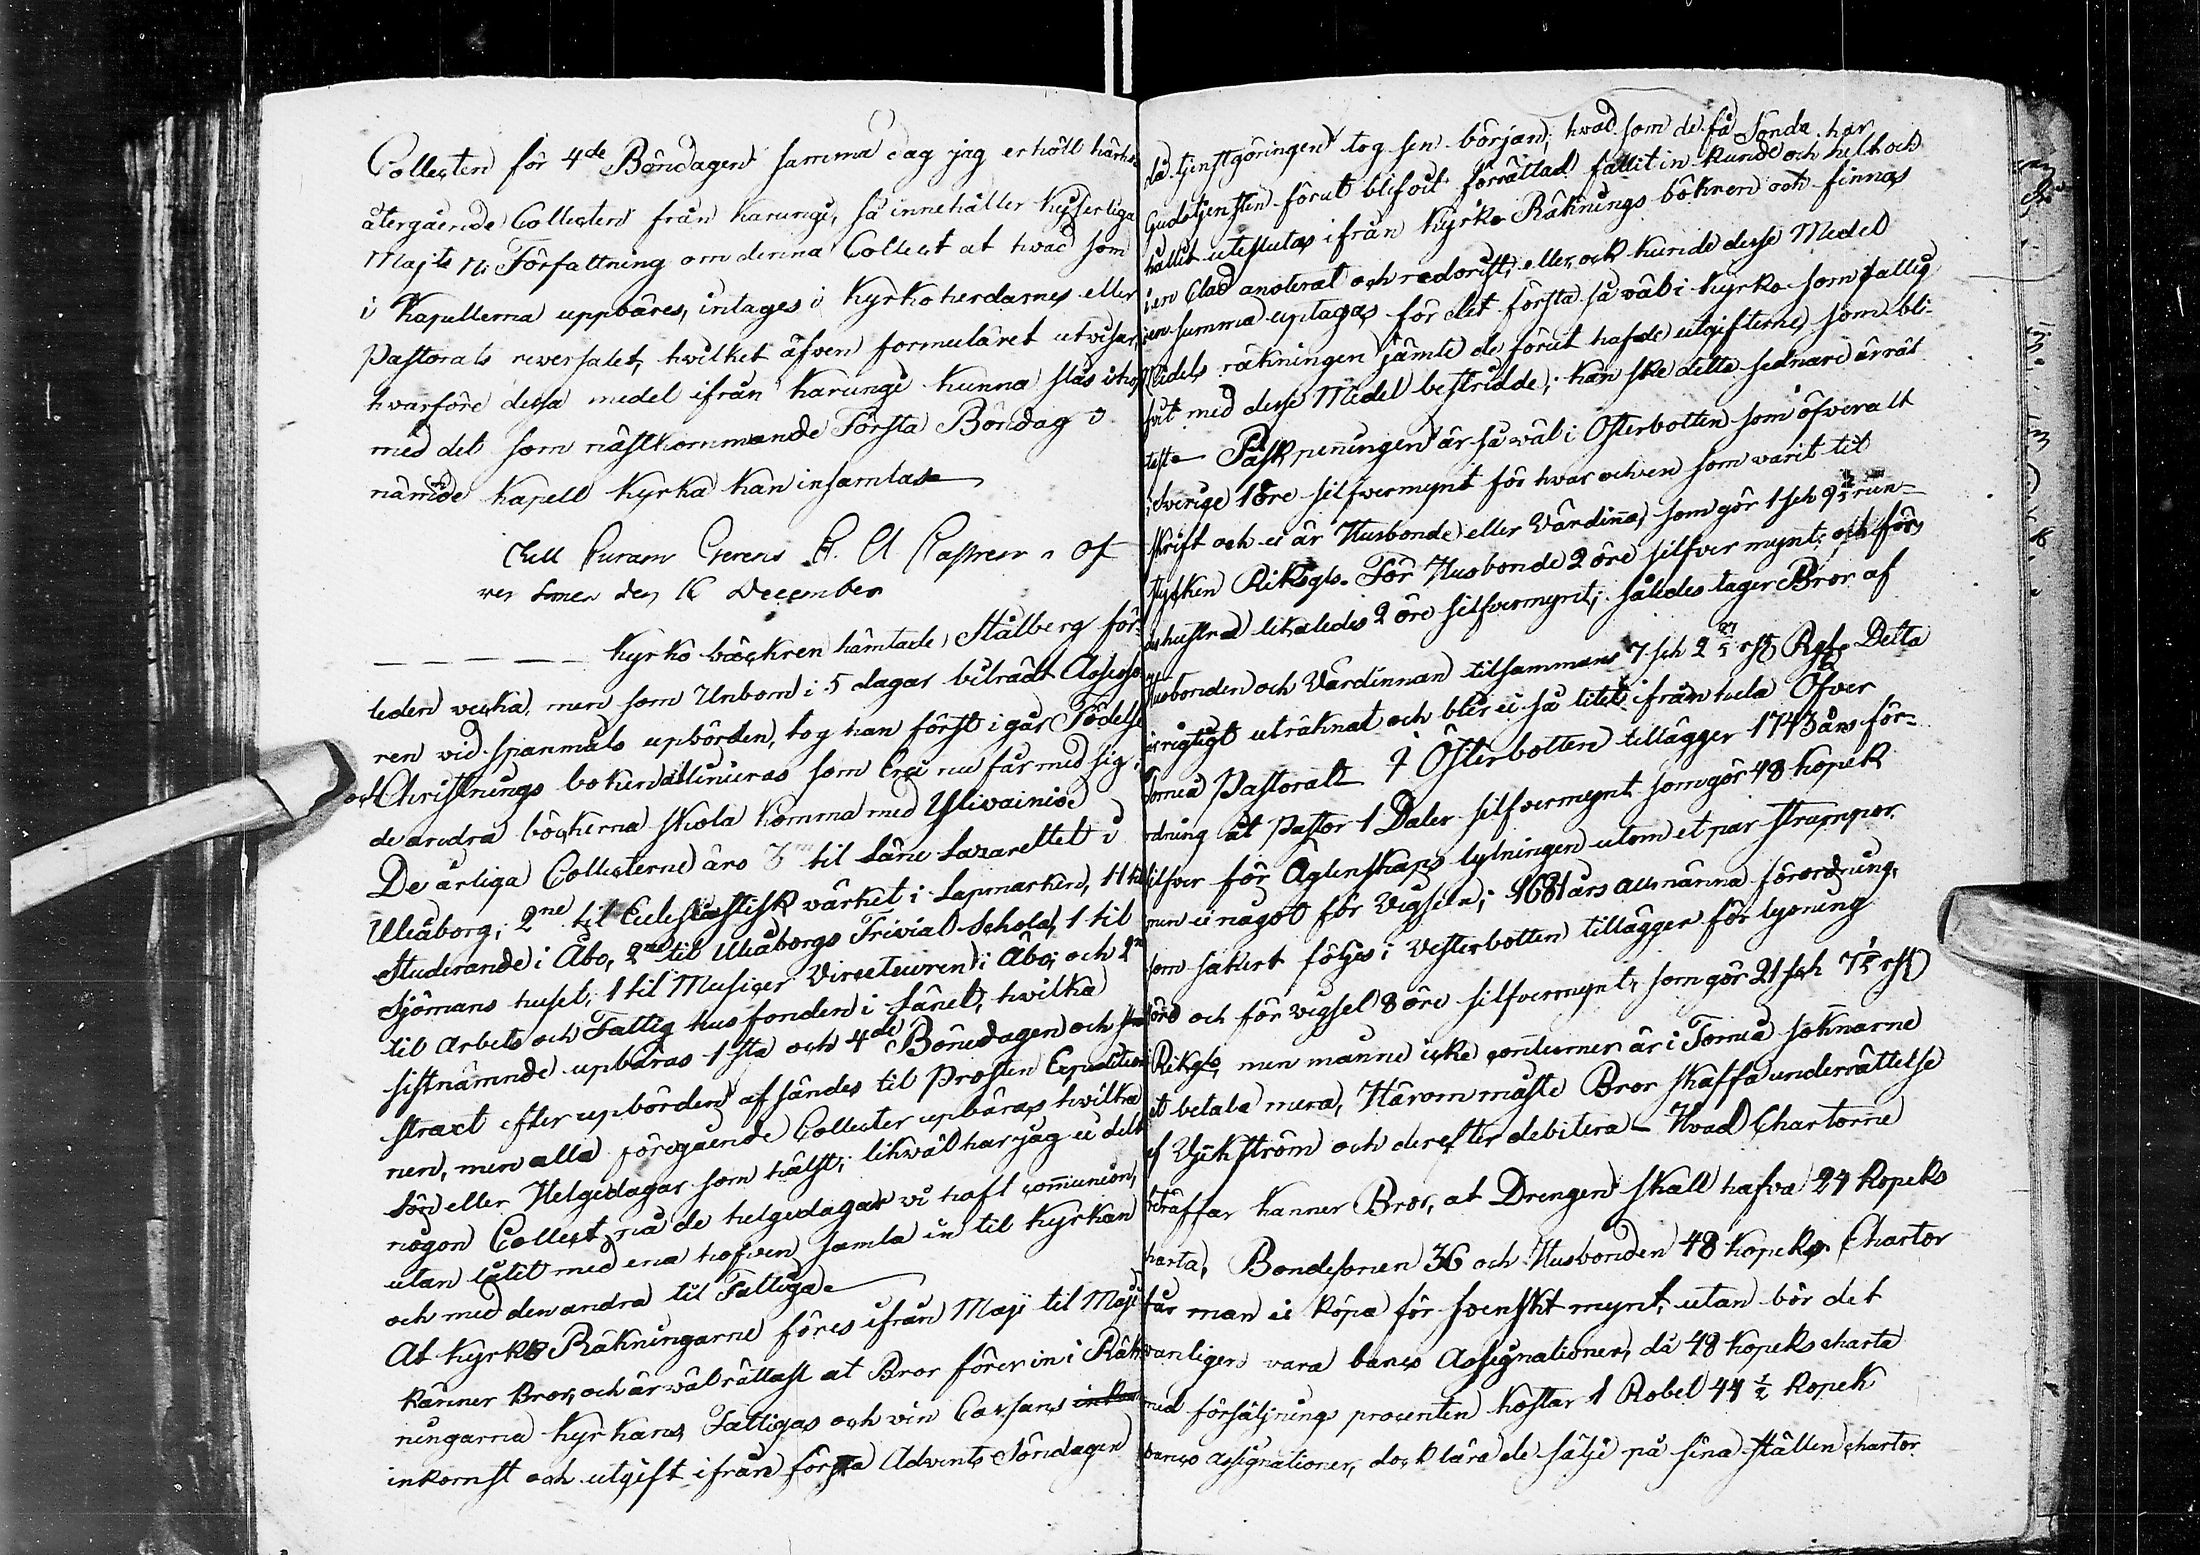 Collecten för 4de Böndagen samma dag jag erhöll härhos
återgående Collecten från Karungi, så innehåller Kejserliga
Majts N: Författning om denna Collect at hvad som
i Kapellerna uppbäres, intages i Kyrkoherdarnes eller
Pastorats reversalet, hvilket äfven formuläret utvisar,
hvarföre dessa medel ifrån Karungi kunna slås ihop
med det som nästkommande Första Böndag i
nämde Kapell Kyrka kan insamlas
Till Curam Gerens A. Of
ver den 16 December
Kyrko böckren hämtade Stålberg för-
leden vecka, men som Unbom i 5 dagar biträdt Assesso
ren vid spanmåls upbörden, tog han först i går Födelse
och Christnings boken at linieras som nu får med sig.
de andra böckerna skola komma med Ylivainio
De årliga Collecterne äro 3 til Läne Lazarettet i
Uleåborg, 2ne til Eclesiastisk värket i Lapmarken, 11 til
Studerande i Åbo, 2ne til Uleåborgs Trivial Schola, 1 til
Sjömans huset, 1 til Musices Directeuren i Åbo, och 2ne
til Arbets och Fattig hus fonden i Länet, hvilka
sistnämnde upbäras 1sta och 4de Bönedagen och
straxt efter upbörden afsändes til Prosten Expeditio
nen, men alla föregående Collecter upbäras hvilka
Sön eller Helgedagar som hälst, likväl har jag ei delt
någon Collect på de helgedagar vi haft communion,
utan låtit med ena hofven samla in til Kyrkan
och med den andra til Fattiga
At Kyrko Räkningarne föres ifrån Maji til Maji
känner Bror, och är väl rättast at Bror förer in i Räk
ningarna Kyrkans, Fattigas och vin Cassans
inkomst och utgift ifrån första Advents Söndagen
då tjenstgöringen tog sen början, hvad som de få Sönda har
Gudstjensten förut blifvit förrättad fallit in kunde och helt och
hållit uteslutas ifrån Kyrko Räknings böknen och finnas
i en Clad anoterat och redovist, eller ock kunde desse Medel
i en summa uptagas för det första så väl i Kyrko som Fattig
Medels räkningen jämte de förut hafde utgifterne som bli-
fvit med desse Medel bestridde, kan ske detta sednare är rät
tast Påskpenningen är så väl i Österbotten som öfveralt
i Sverige 1 öre silfvermynt för hvar och en som varit til
skrift och ei är Husbonde eller Värdinna, som gör 1 sch 9 3/5 run-
stycken Riksgls. För Husbonde 2 öre silfver mynt, och för
des hustru likaledes 2 öre silfvermynt, således tager Bror af
Husbonden och Värdinnan tilsammans 7 sch 2 rst Rgls Detta
är rigtigt uträknat och blir ei så litet ifrån hela Öfver
Torneå Pastorat I Österbotten tillägger 1743 års för-
ordning åt Pastor 1 Daler silfvermynt som gör 48 Kopek
silfver för Äglenskaps lysningen utom et par strumpor
men ei något för Vigseln; 1681 års allmänna förordning,
som säkert följes i Vesterbotten tillägger för lysning
öre och för vigsel 8 öre silfvermynt, som gör 21 sch 7 1/5 rst
Rikgls, men månne icke är i Torneå soknarne
at betala mera, Härom måste Bror skaffa underrättelse
af Wickström och derefter debitera – Hvad Chartorne
beträffar känner Bror, at Drengen skall hafva 24 Kopeks
charta, Bondesonen 36 och Husbonden 48 Kopeks. Chartor
får man ei köpa för svenskt mynt, utan bör det
vanligen vara banco Assignationer, då 48 Kopeks charta
med försäljnings procenten kostar 1 Robel 44 1/2 Kopek
banco assignationer, dock lära de sälje på sina ställen chartor